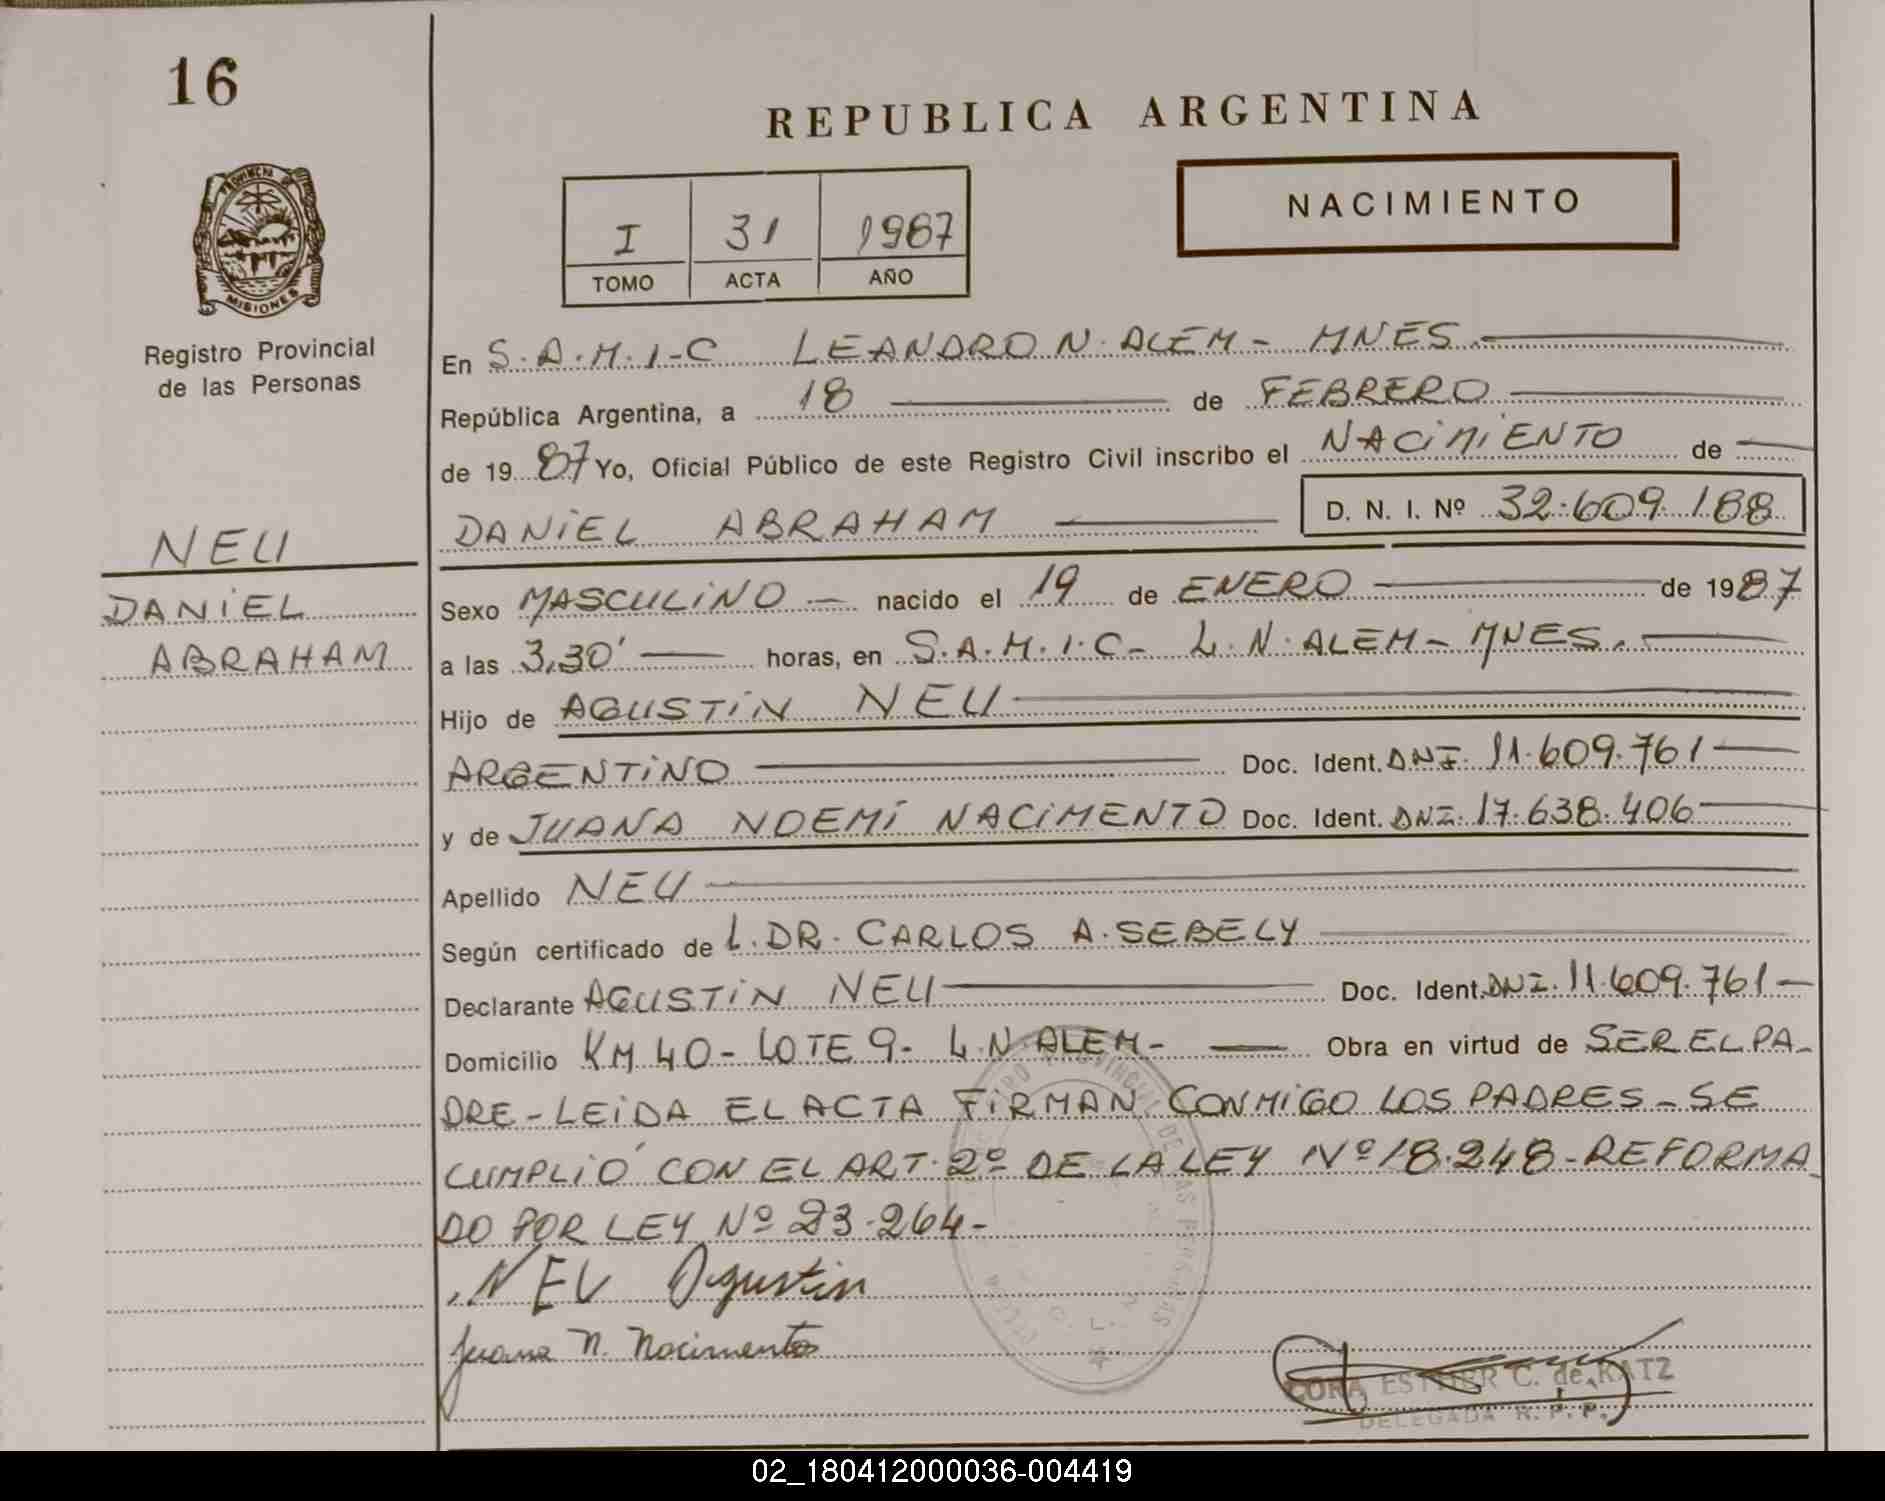 16
REPUBLICA ARGENTINA
PROVINCIA DE
MISIONES
Registro Provincial
de las Personas
NACIMIENTO
I 31 1987
TOMO ACTA AÑO
NEU
DANIEL
ABRAHAM
En S.A.M.I-C LEANDRO N. ALEM - MNES.
República Argentina, a 18 de FEBRERO
de 1987 Yo, Oficial Público de este Registro Civil inscribo el NACIMIENTO de
DANIEL ABRAHAM D. N. I. Nº 32.609.188
Sexo MASCULINO - nacido el 19 de ENERO de 1987
a las 3,30' horas, en S.A.M.I.C- L.N. ALEM - MNES.
Hijo de AGUSTIN NEU
ARGENTINO Doc. Ident. DNI. 11.609.761
y de JUANA NOEMÍ NACIMENTO Doc. Ident. DNI. 17.638.406
Apellido NEU
Según certificado de L. DR. CARLOS A. SEBELY
Declarante AGUSTIN NEU Doc. Ident. DNI. 11.609.761
Domicilio KM 40 - LOTE 9 - L.N. ALEM - Obra en virtud de SER EL PA-
DRE - LEIDA EL ACTA FIRMAN CONMIGO LOS PADRES - SE
CUMPLIÓ CON EL ART. 2º DE LA LEY Nº 18.248 - REFORMA
DO POR LEY Nº 23.264 -
NEU Agustin
Juana N. Nacimento
CORA ESTHER C. de KATZ
DELEGADA R. P. P.
02_180412000036-004419